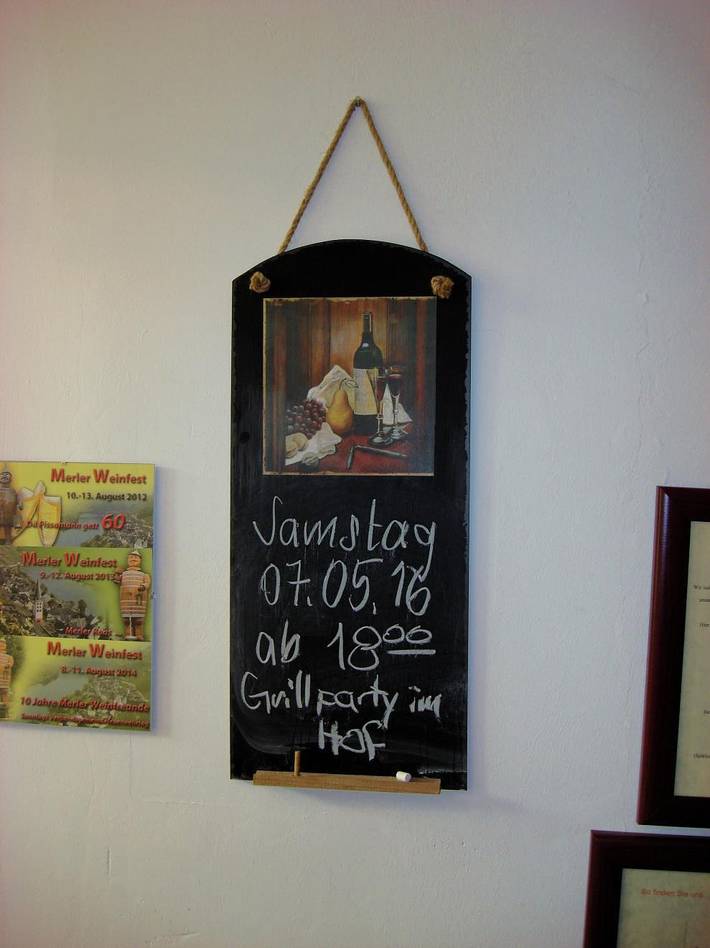 Merler Weinfest
10.-13. August 2012
Dä Pissamarin gett 60
Merler Weinfest
9.-12. August 2013
Merler Weinfest
8.-11. August 2014
10 Jahre Merler Weinfreunde
Samstag
07.05.16
ab 18⁰⁰
Grillparty im
Hof